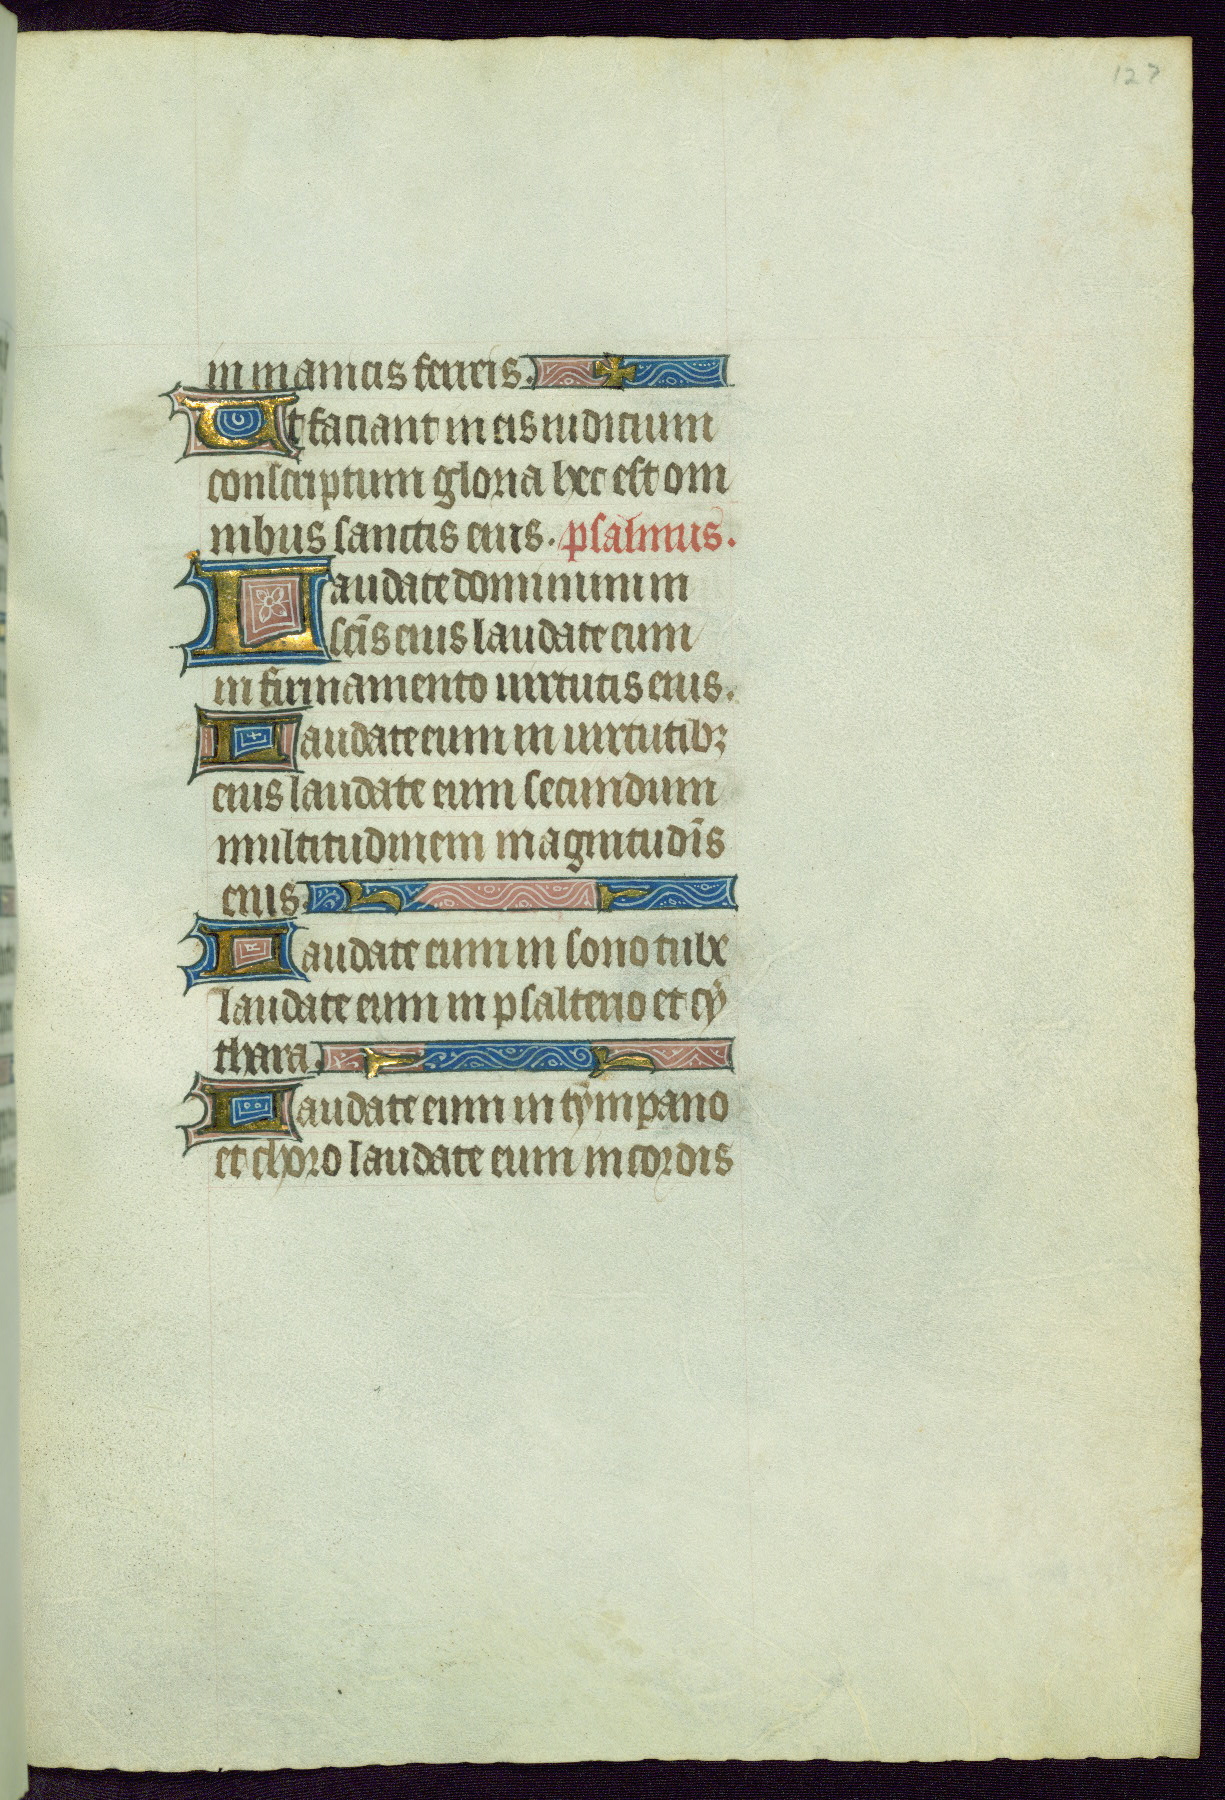 127
in manicis ferreis.
Ut faciant in eis iudicium
conscriptum gloria hec est om
nibus sanctis eius. psalmus.
Laudate dominum in
sc̄is eius laudate eum
in firmamento uirtutis eius.
Laudate eum in uirtutibꝫ
eius laudate eum secundum
multitudinem magnitudīs
eius.
Laudate eum in sono tube
laudate eum in psalterio et cy
thara.
Laudate eum in tympano
et choro laudate eum in cordis